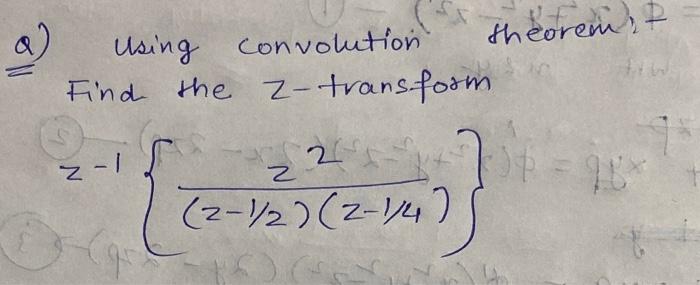 Q) Using convolution theorem,
Find the Z-transform
z-1 { z2 / (z-1/2)(z-1/4) }